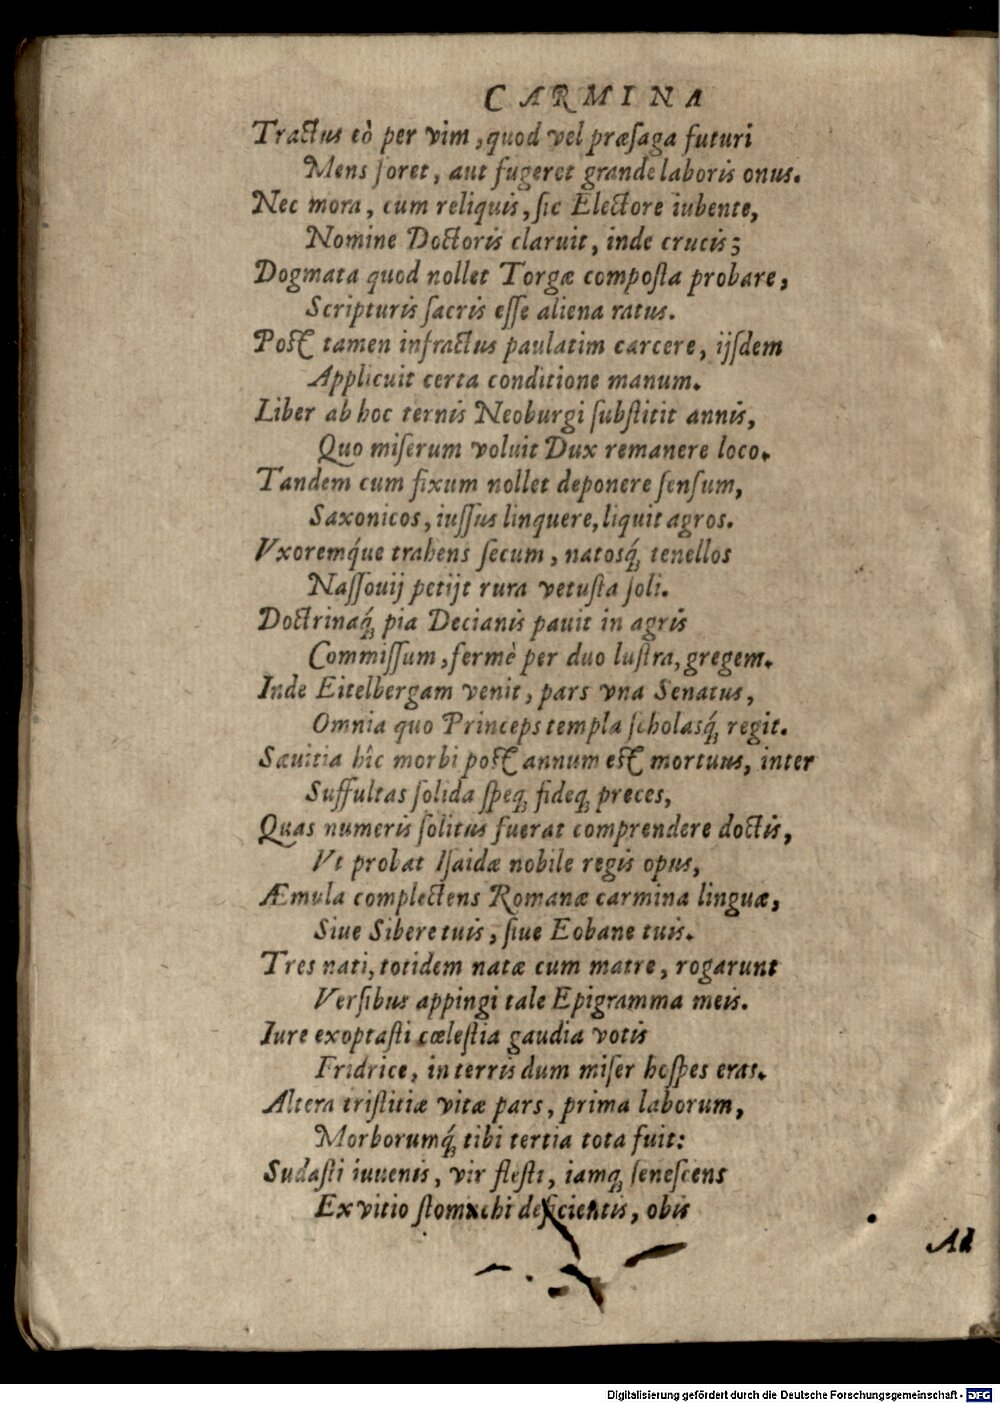 CARMINA
Tractus eò per vim, quod vel præsaga futuri
Mens foret, aut fugeret grande laboris onus.
Nec mora, cum reliquis, sic Electore iubente,
Nomine Doctoris claruit, inde crucis;
Dogmata quod nollet Torgæ composta probare,
Scripturis sacris esse aliena ratus.
Post tamen infractus paulatim carcere, ijsdem
Applicuit certa conditione manum.
Liber ab hoc ternis Neoburgi substitit annis,
Quo miserum voluit Dux remanere loco.
Tandem cum fixum nollet deponere sensum,
Saxonicos, iussus linquere, liquit agros.
Vxoremq́ue trahens secum, natosq́; tenellos
Nassouij petijt rura vetusta soli.
Doctrinaq́; pia Decianis pauit in agris
Commissum, fermè per duo lustra, gregem.
Inde Eitelbergam venit, pars vna Senatus,
Omnia quo Princeps templa scholasq́; regit.
Sæuitia hîc morbi post annum est mortuus, inter
Suffultas solida speq; fideq; preces,
Quas numeris solitus fuerat comprendere doctis,
Vt probat Isaidæ nobile regis opus,
Æmula complectens Romanæ carmina linguæ,
Siue Sibere tuis, siue Eobane tuis.
Tres nati, totidem natæ cum matre, rogarunt
Versibus appingi tale Epigramma meis.
Iure exoptasti cœlestia gaudia votis
Fridrice, in terris dum miser hospes eras.
Altera tristitiæ vitæ pars, prima laborum,
Morborumq́; tibi tertia tota fuit:
Sudasti iuuenis, vir flesti, iamq; senescens
Ex vitio stomachi deficientis, obis
Ad
Digitalisierung gefördert durch die Deutsche Forschungsgemeinschaft - DFG